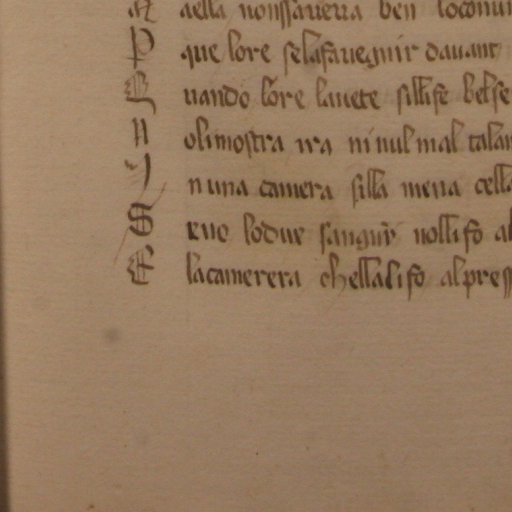 M aella nonssaveva ben loconvi
P que lore selafavegnir davant
Q uando lore lavete sillife belse
N olimostra ira ni nul mal talan
I n una camera silla mena cella
S eue lodue sanguir nollifo al
E lacamerera chellalifo alpress